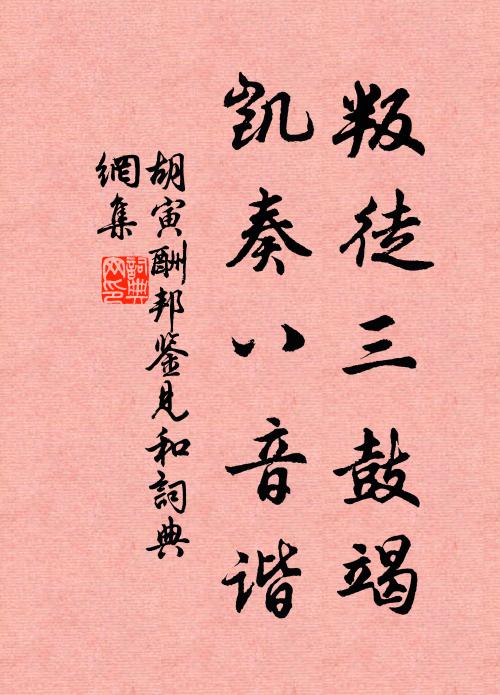 叛徒三鼓竭
凯奏八音谐
胡寅酬邦鉴见和词典
網集
詞典
网印